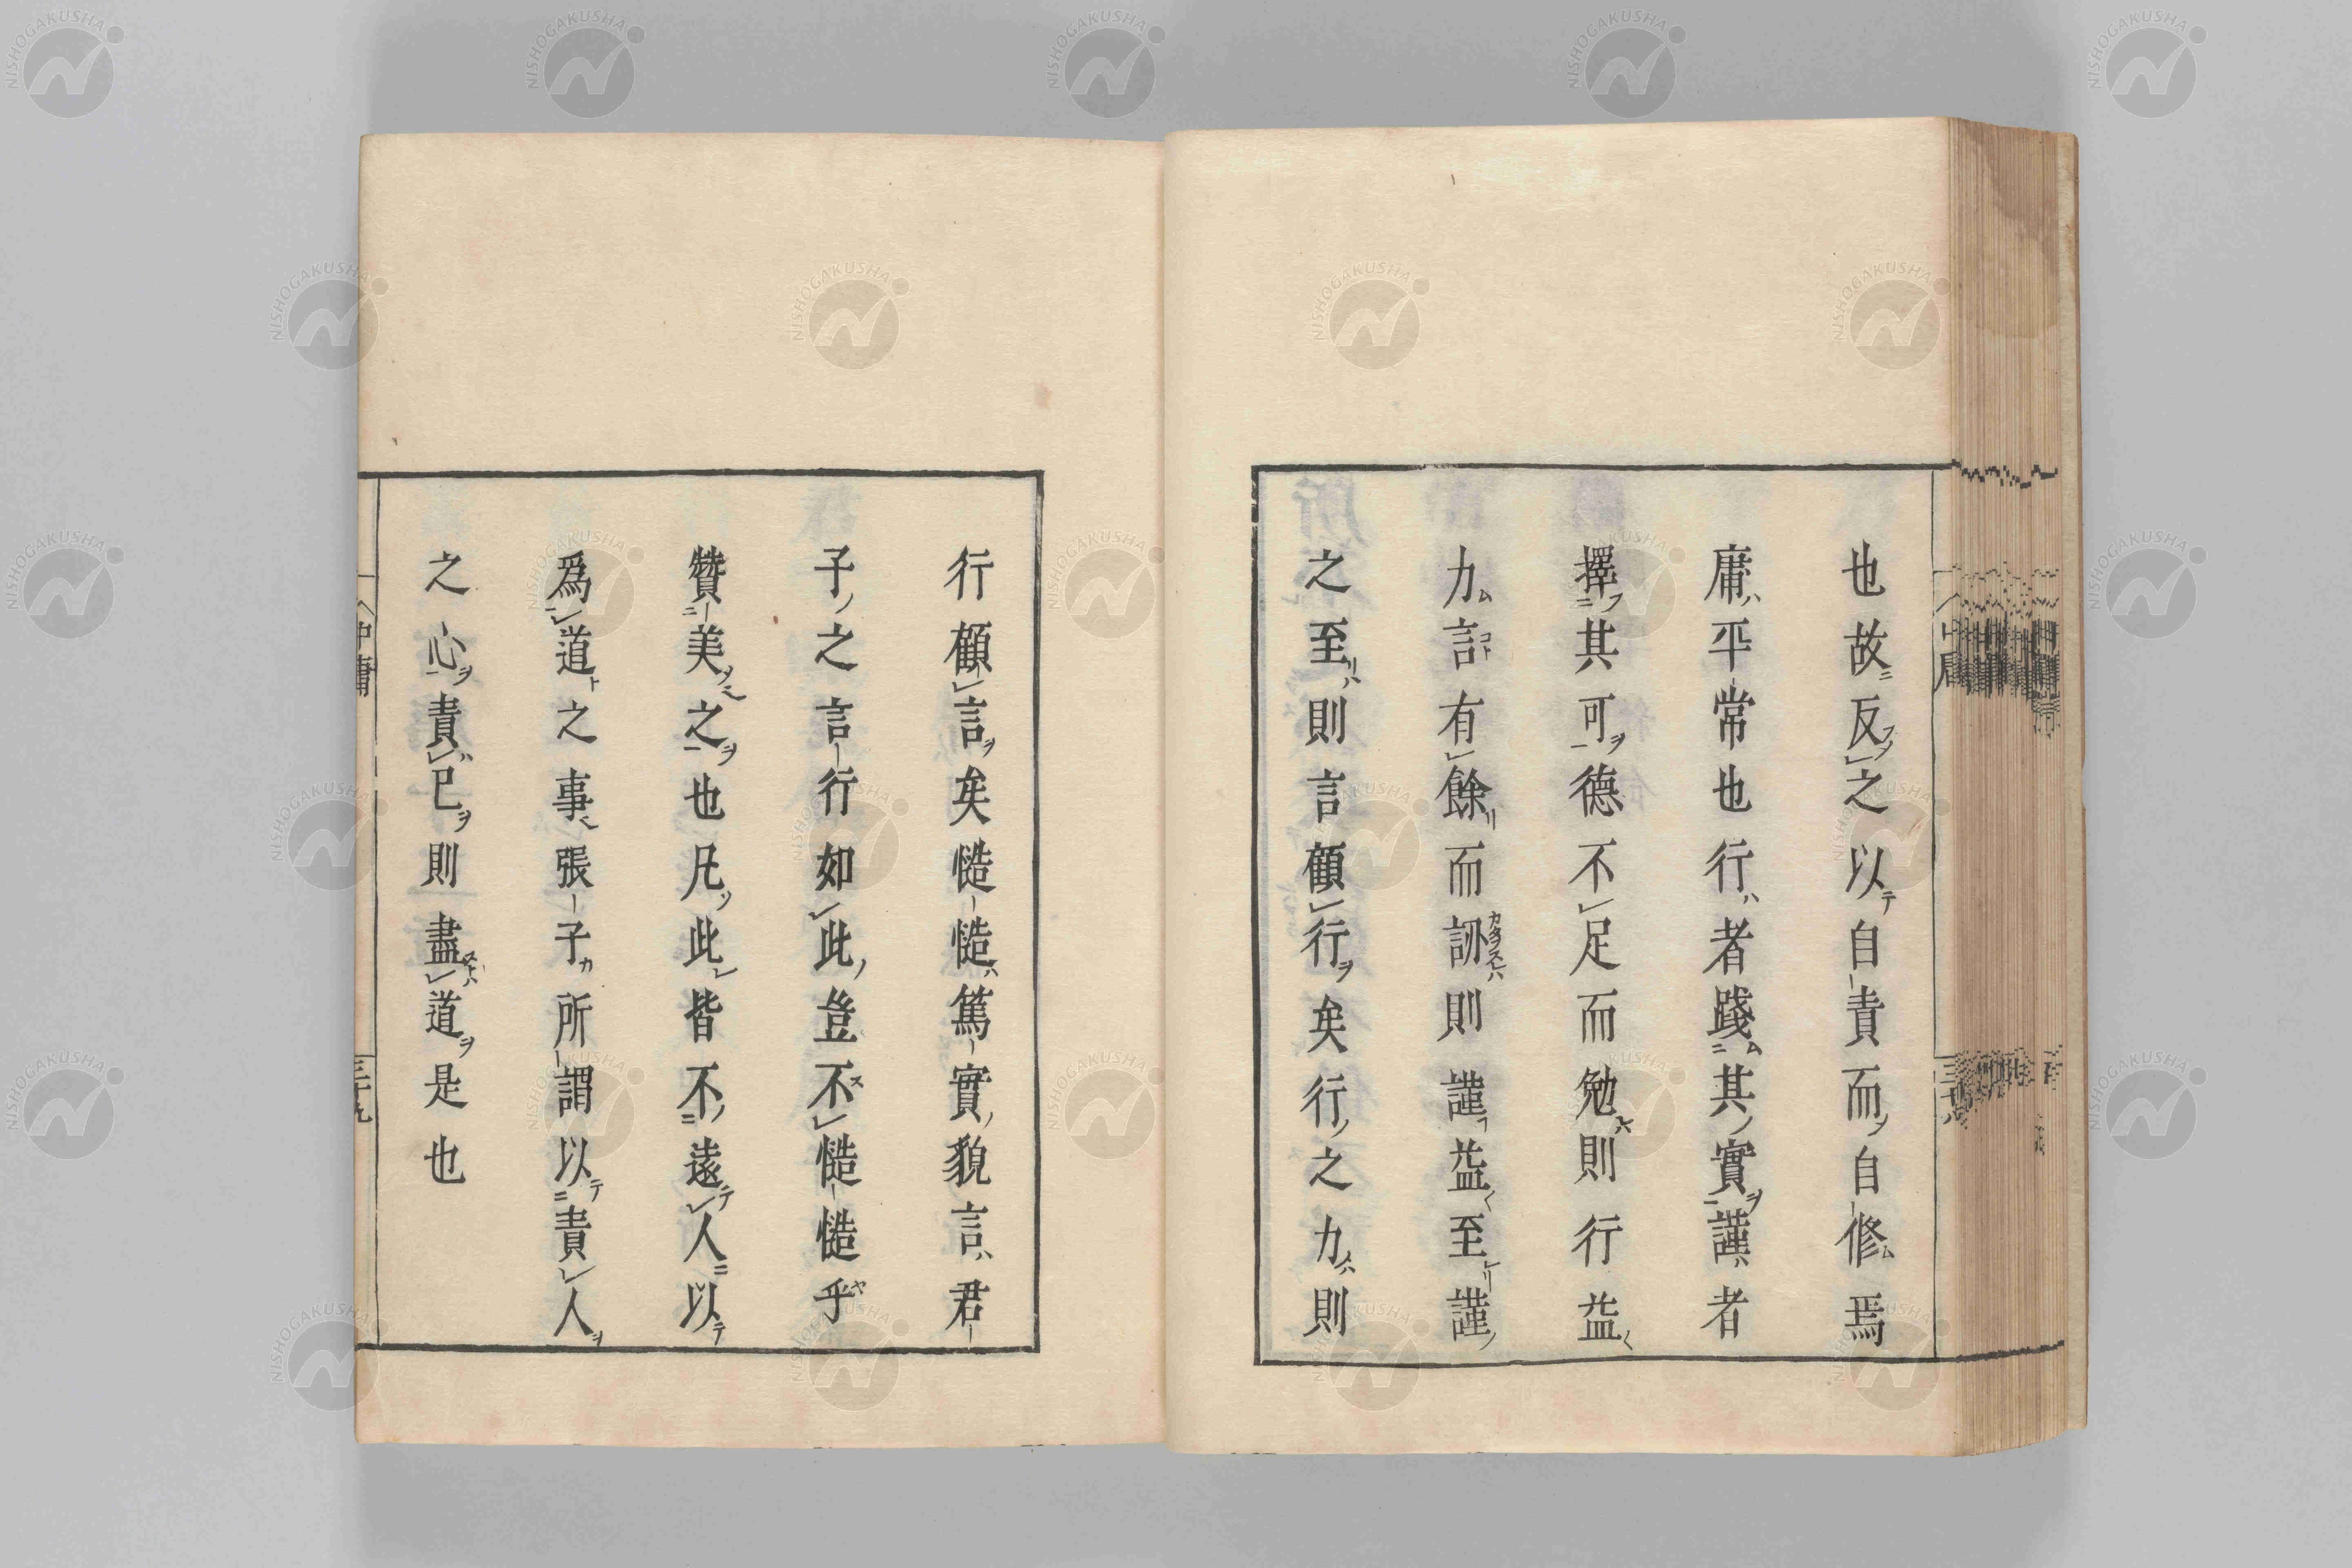 也故反之以自責而自修焉
庸平常也行者踐其實謹者
擇其可德不足而勉則行益
力言有餘而訒則謹益至謹
之至則言顧行矣行之力則
行顧言矣慥慥篤實貌言君
子之言行如此豈不慥慥乎
贊美之也凡此皆不遠人以
爲道之事張子所謂以責人
之心責已則盡道是也
中庸
三十九
NISHOGAKUSHA